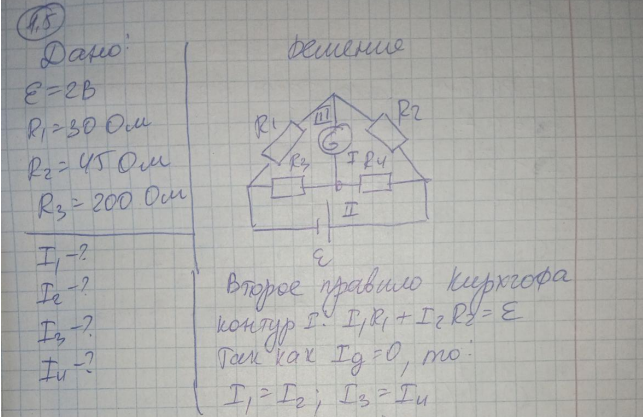 1.5
Дано:
Решение
ε = 2В
R1 = 30 Ом
R2 = 45 Ом
R3 = 200 Ом
I1 - ?
I2 - ?
I3 - ?
I4 - ?
R1
III
R2
G
R3
I
R4
II
ε
Второе правило Кирхгофа
контур I: I1R1 + I2R2 = ε
Так как Iд = 0, то:
I1 = I2; I3 = I4